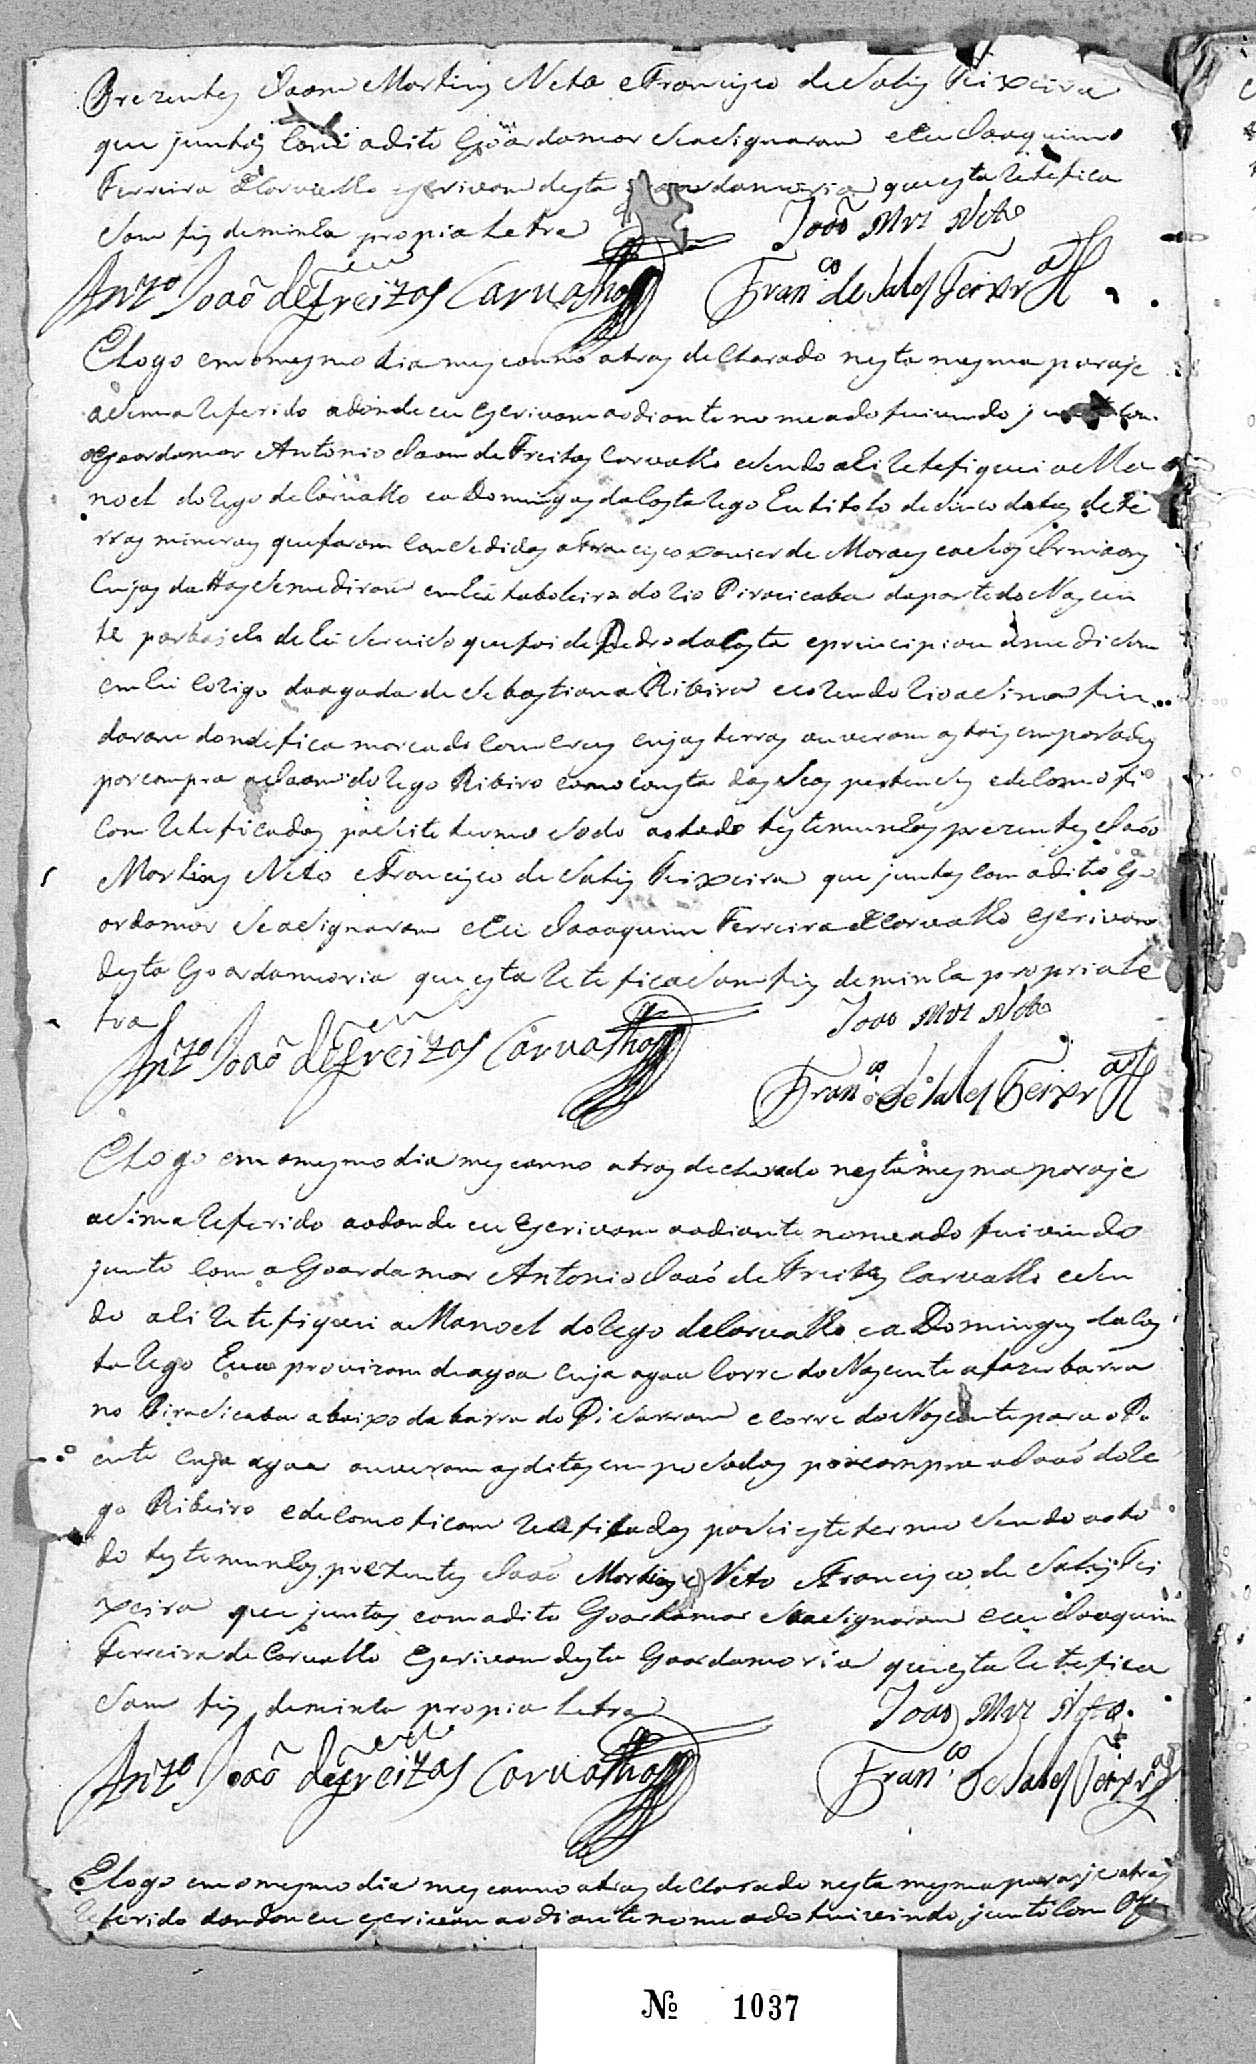 Prezentes Joam Martins Neto e Francisco de Sales Teixeira
que juntos com o dito Goardamor Se asignaram e Eu Joaquim
Ferreira de Carvalho escrivam desta Goardamoria que esta Retefica
Sam fis de minha propia Letra João Mrz Neto
Antº João de Freitas Carvalho Franco de Sales Teixrª
E logo em o mesmo dia mes e anno atras declarado nesta mesma paraje
aSima Referido adonde eu Escrivam ao diante nomeado fui vindo junto com
o Goardamor Antonio Joam de Freitas Carvalho e Sendo ali Retefiquei a Ma
noel do Rego de Carvalho e a Domingos da Costa Rego Eu titolo de Sinco datas de te
rras mineraes que foram Comsedidas a Francisco Xavier de Moraes e a Seos Irmaons
Cujas dattas Se mediram em hu taboleiro do Rio Piracicaba da parte do Nascen
te por baixo de hu Serviso que foi de Pedro da Costa e principiou a medisam
em hu Corigo da agada de Sebastiam Ribeiro e corendo Rio aSima fin
daram donde fica marcado Com Crus cujas terras ouveram as tais emposados
por compra a Joam do Rego Ribiro como consta das Seos pertenses e de Como fi
Com Reteficados paSei este termo Sendo a todo testemunhas prezentes João
Martins Neto e Francisco de Sales Teixeira que juntos Com o dito Go
ardamor Se asignaram e Eu Joaquim Ferreira de Carvalho escrivam
desta Goardamoria que esta ReteficaSam fis de minha propria Le
tra João Mrz Neto
Antº João de Freitas Carvalho Franco de Sales Teixrª
E logo em o mesmo dia mes e anno atras declarado nesta mesma paraje
aSima Referido aodonde eu Escrivam ao diante nomeado fui vindo
junto Com o Goardamor Antonio João de Freitas Carvalho e Sen
do ali Retefiquei a Manoel do Rego de Carvalho e a Domingos da Cos
ta Rego Eua provizam de agoa cuja agoa Corre do Nascente a fazer barra
no Piracicaba abaixo da barra do Pisarram e corre do Nascente para o Po
ente cuja agoa ouveram os ditos emposados por compra a João do Re
go Ribeiro e de como ficam Reteficados paSei este termo Sendo a to
do testemunhas prezentes João Martins Neto e Francisco de Sales Tei
xeira que juntos com o dito Goardamor Se asignaram e eu Joaquim
Ferreira de Carvalho Escrivam desta Goardamoria que esta Retefica
Sam fis de minha propia Letra João Mrz Neto
Antº João de Freitas Carvalho Franco de Sales Teixrª
E logo em o mesmo dia mes e anno atras declarado nesta mesma paraje atras
Referido donde eu escrivam ao diante nomeado fui vindo junto Com o
Nº 1037